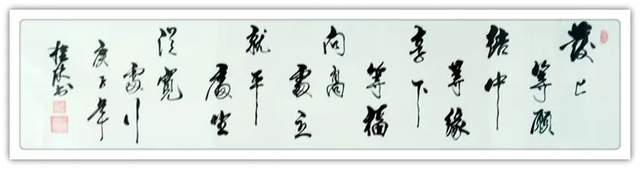 發上
等願
結中
等緣
享下
等福
向高
處立
就平
處坐
從寬
處行
庚子年